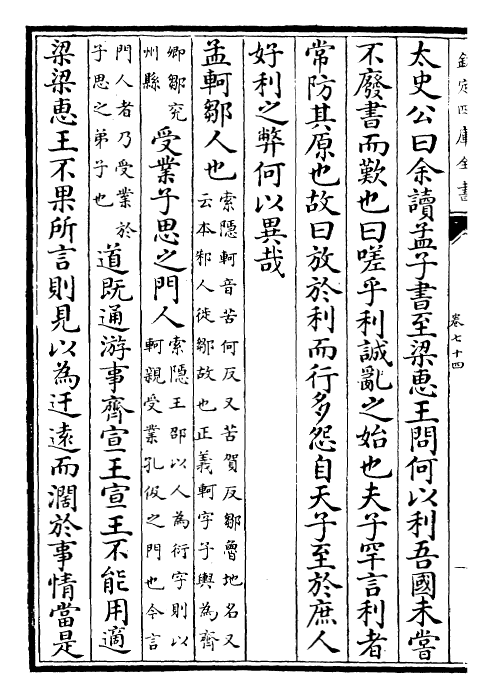 欽定四庫全書
卷七十四
一
太史公曰余讀孟子書至梁恵王問何以利吾國未嘗
不廢書而歎也曰嗟乎利誠亂之始也夫子罕言利者
常防其原也故曰放於利而行多怨自天子至於庶人
好利之弊何以異哉
孟軻鄒人也
索隱軻音苦何反又苦賀反鄒魯地名又
云本邾人徙鄒故也正義軻字子輿為齊
卿鄒兖
州縣
受業子思之門人
索隱王邵以人為衍字則以
軻親受業孔伋之門也今言
門人者乃受業於
子思之弟子也
道既通游事齊宣王宣王不能用適
梁梁恵王不果所言則見以為迂逺而濶於事情當是